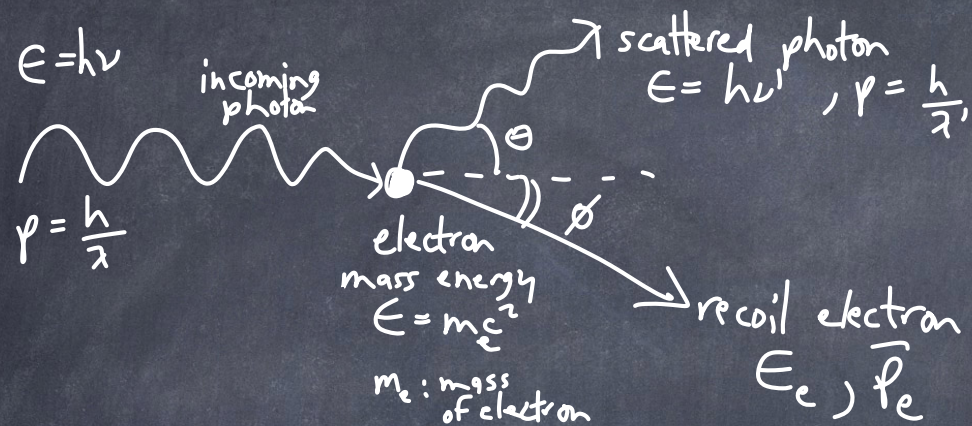 ϵ = hν
incoming
photon
p = h/λ
scattered photon
ϵ = hν' , p = h/λ'
θ
ϕ
electron
mass energy
ϵ = m_e c²
m_e : mass
of electron
recoil electron
ϵ_e , p̄_e